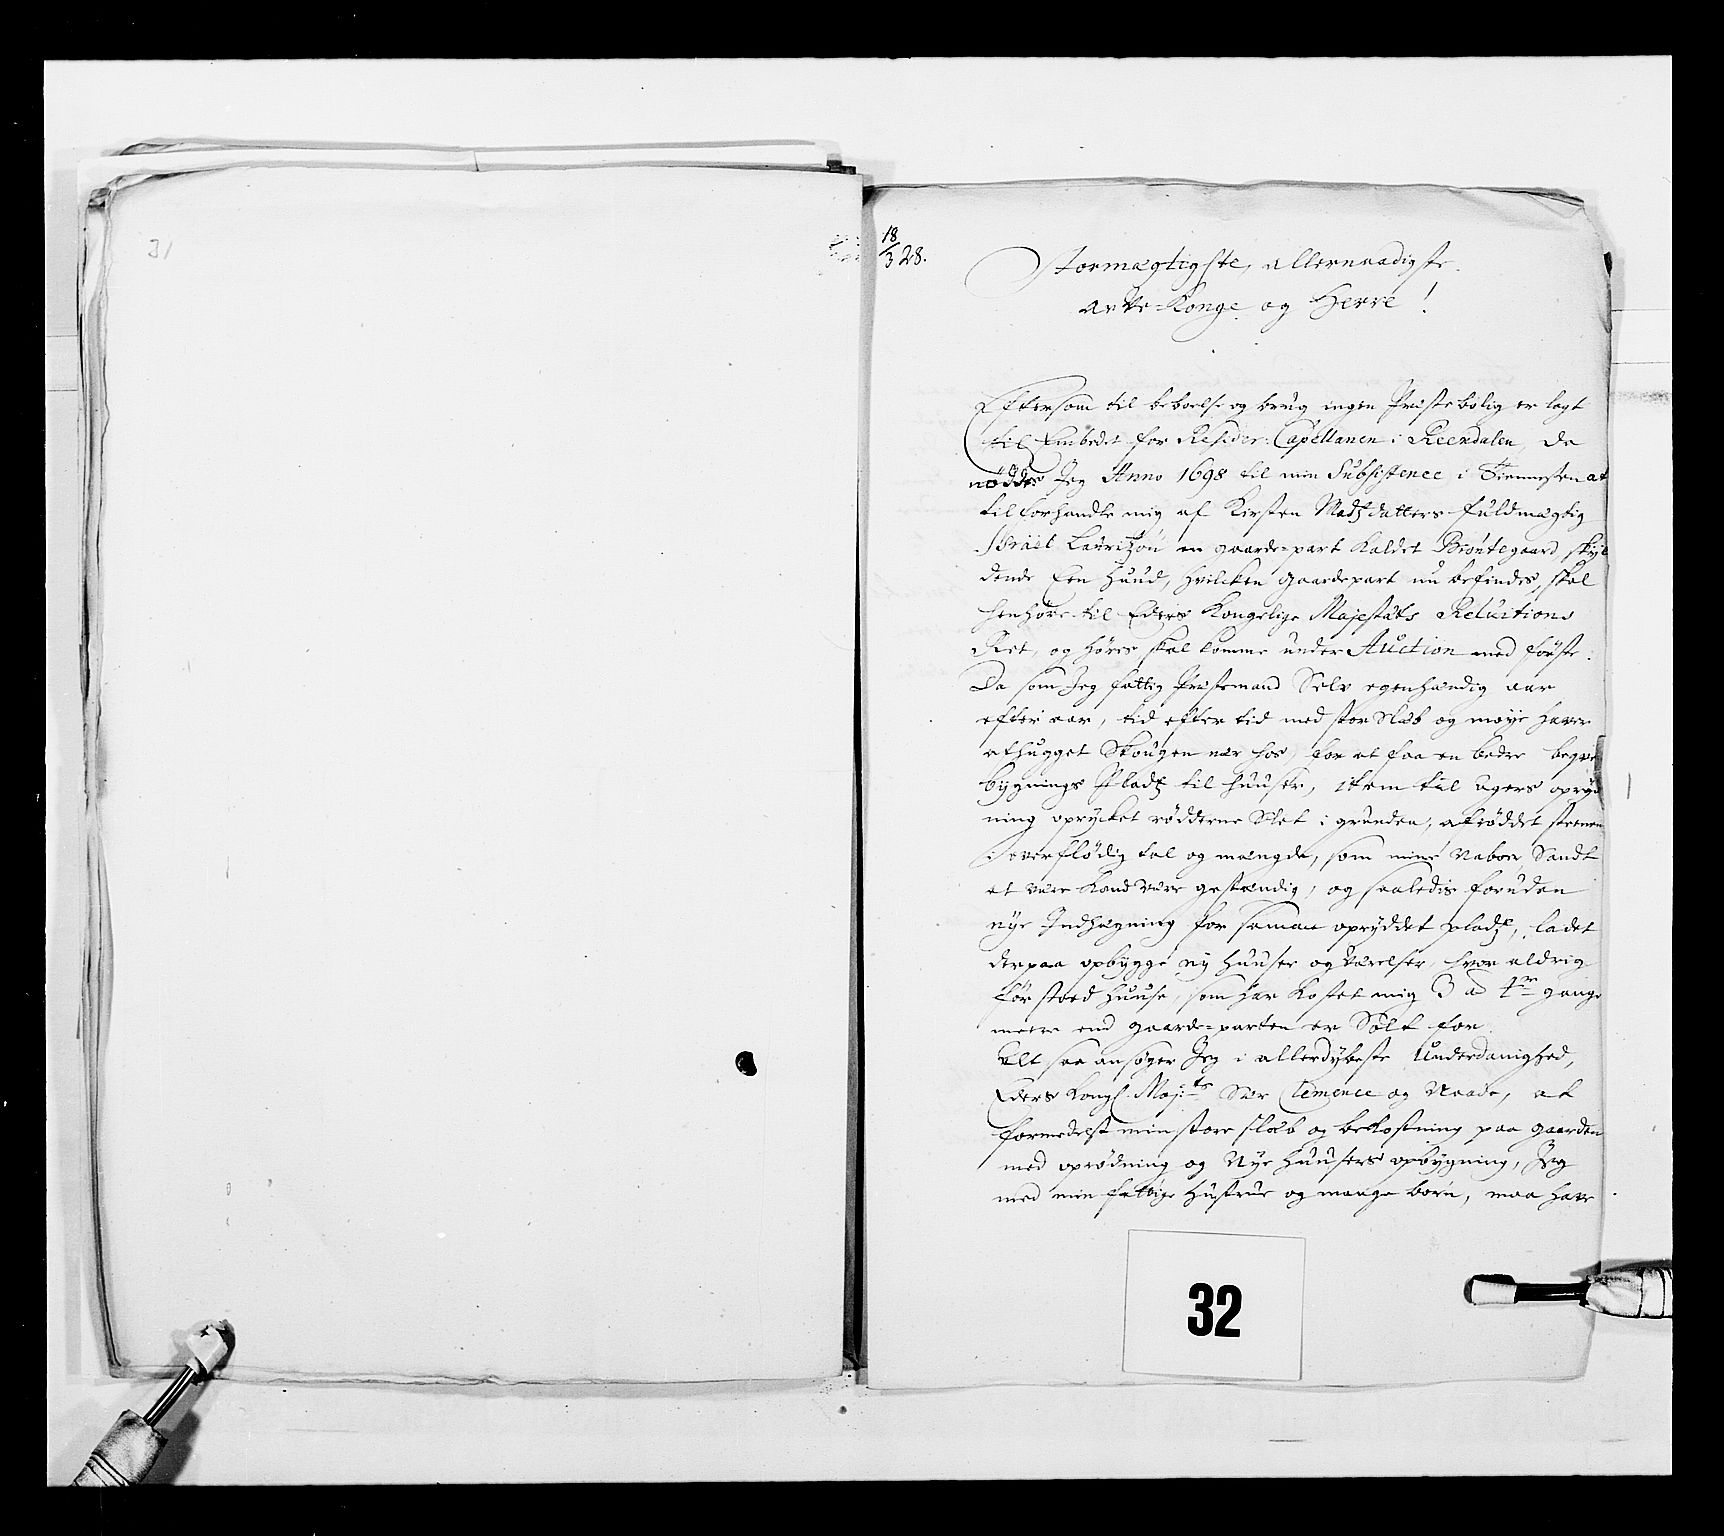 31
18/3 28.
Stormægtigste, allernaadigste
Arve-Konge og Herre!
Eftersom til beboelse og brug ingen Præstebolig er lagt
til Embedet for Resider: Capellanen i Reendalen, da
nøddes Jeg Anno 1698 til min Subsistence i Tienesten at
tilforhandle mig af Kirsten Madtzdatters Fuldmægtig
Israel Lauritzøn en gaarde-part kaldet Brøntegaard, skyl
dende Een Huud, hvilcken gaardepart nu befindes, skal
henhøre til Eders Kongelige Majestæts Reluitions
Ret, og høres skal komme under Auction med første.
Da som Jeg fattig Præstemand Selv egenhændig aar
efter aar, tid efter tid med stor Slæb og møye haver
afhugget Skougen nær hos, for at faa en bedre beqve
bygnings Pladtz til huuser, item til agers opryd
ning oprycket rødderne Slet i grunden, afrøddet steenen
i overflødig tal og mængde, som mine Naboer Sandt
at være kand være gestændig, og saaledis foruden
nye Indhegning for samme opryddet pladtz, ladet
derpaa opbygge ny huuser og værelser, hvor aldrig
før stoed huuse, som har kostet mig 3 a 4re gange
meere end gaarde-parten er Solt for.
Alt saa ansøger Jeg i allerdybeste Underdanighed,
Eders Kongl. Maj:ts Stor Clemence og Naade, at
formedelst min store slæb og bekostning paa gaarden
med oprødning og Nye huusers opbygning, Jeg
med min fattige Hustrue og mange børn, maa have
32